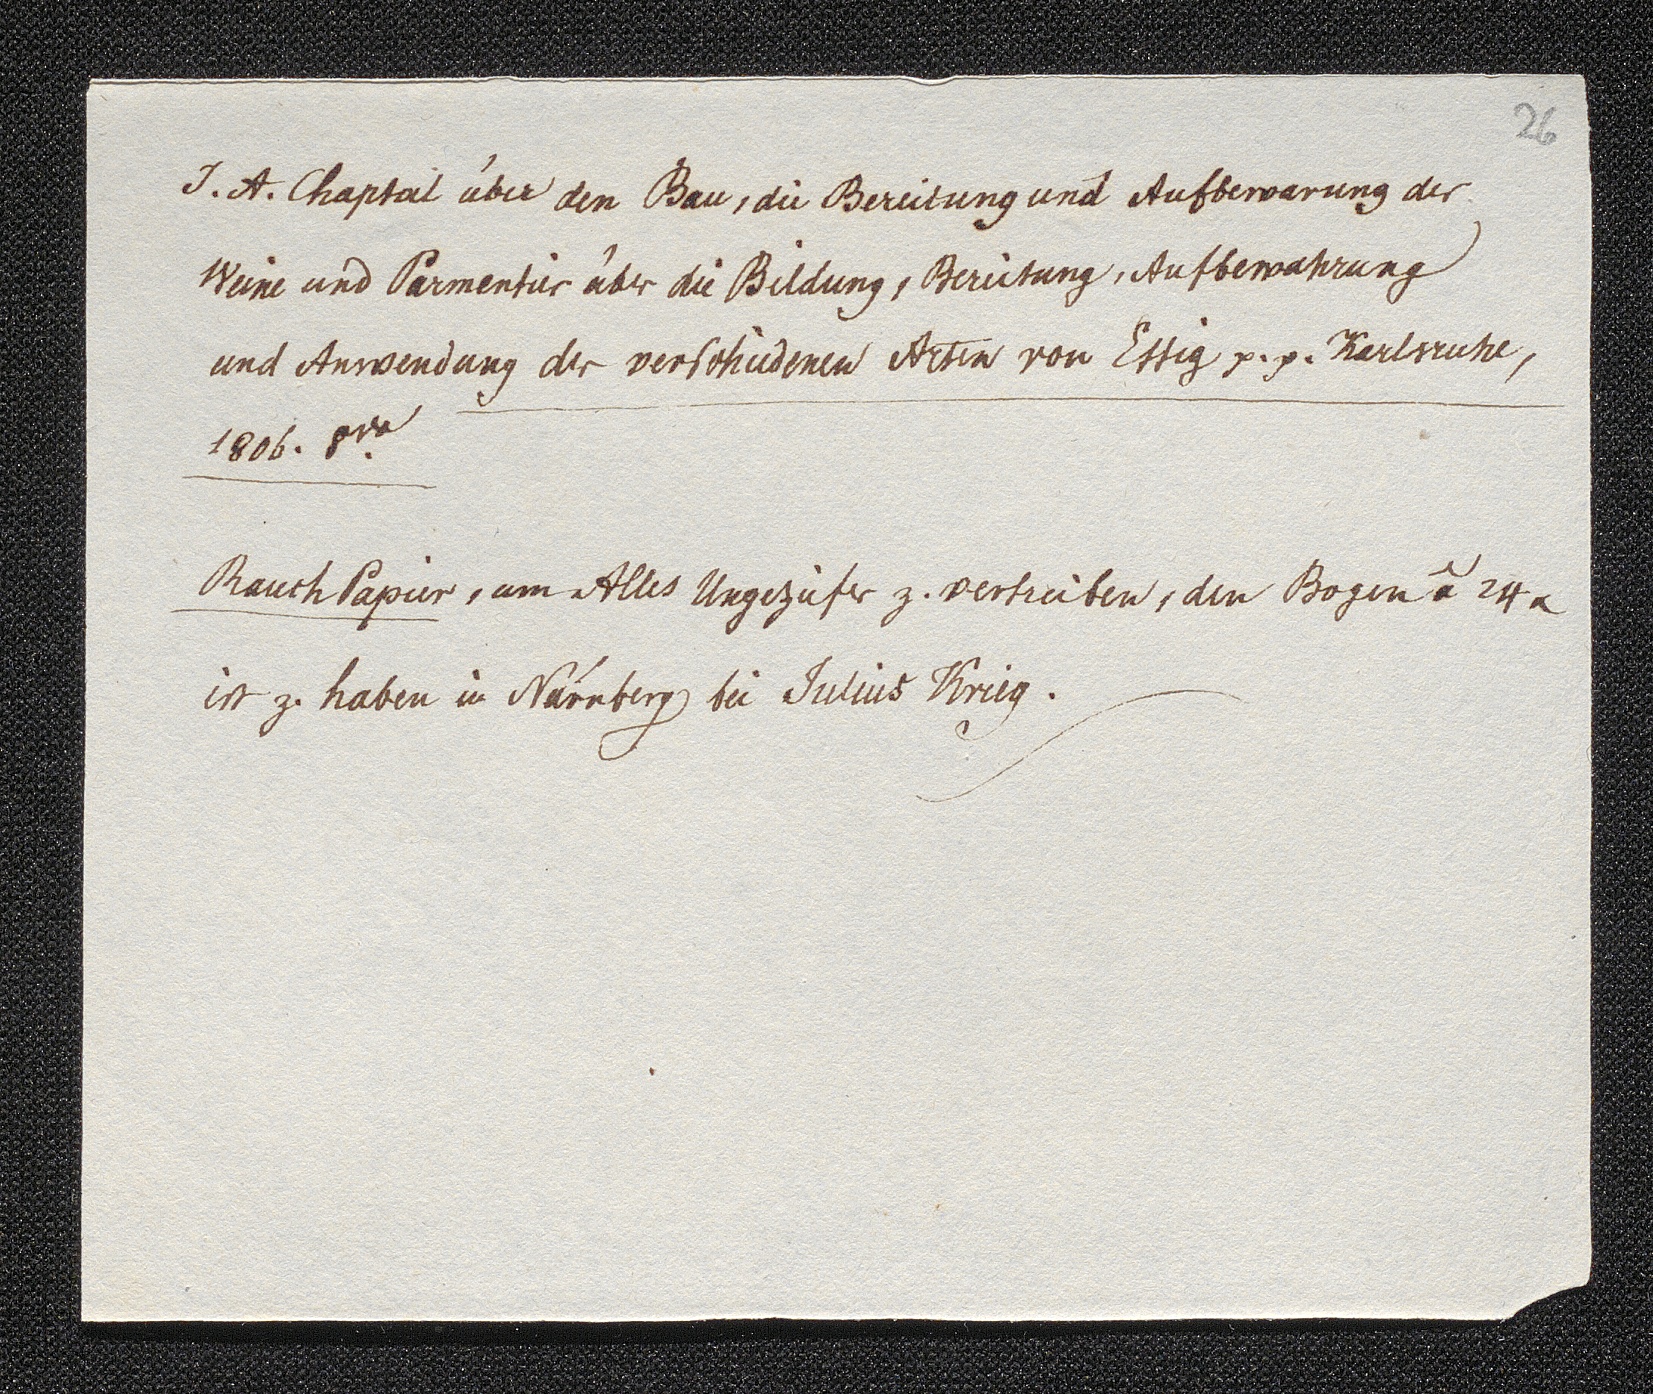 26
J. A. Chaptal über den Bau, die Bereitung und Aufbewarung der
Weine und Parmentier über die Bildung, Bereitung, Aufbewahrung
und Anwendung der verschiedenen Arten von Essig p. p. Karlsruhe,
1806. 8vo.
Rauch Papier, um Alles Ungeziefer z. vertreiben, den Bogen à 24
ist z. haben in Nürnberg bei Julius Krieg.